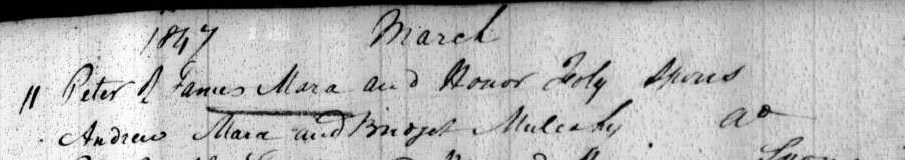 1847 March
11 Peter of James Mara and Honor Foly Spons
Andrew Mara and Bridget Mulcahy ao